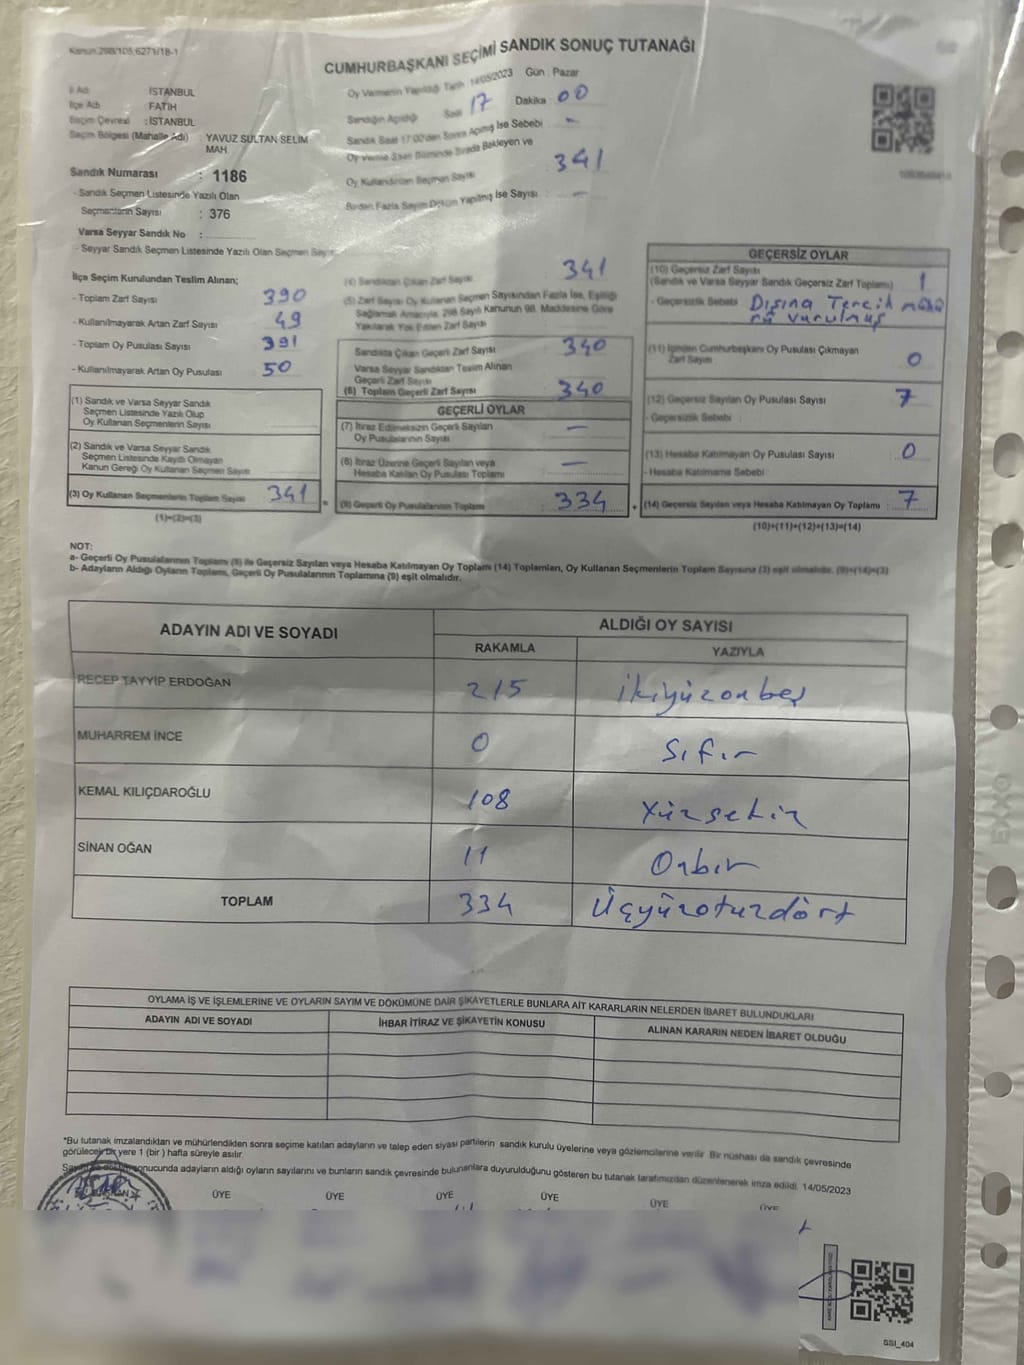 Kanun.298/105,6271/18-1
CUMHURBAŞKANI SEÇİMİ SANDIK SONUÇ TUTANAĞI
İl Adı : İSTANBUL
İlçe Adı : FATİH
Seçim Çevresi : İSTANBUL
Seçim Bölgesi (Mahalle Adı) : YAVUZ SULTAN SELİM MAH
Sandık Numarası : 1186
- Sandık Seçmen Listesinde Yazılı Olan
Seçmenlerin Sayısı : 376
Varsa Seyyar Sandık No :
- Seyyar Sandık Seçmen Listesinde Yazılı Olan Seçmen Sayısı
Oy Vermenin Yapıldığı Tarih 14/05/2023 Gün : Pazar
Sandığın Açıldığı Saat 17 Dakika 00
Sandık Saat 17:00'den Sonra Açılmış İse Sebebi : -
Oy Verme Saati Bitiminde Sırada Bekleyen ve
Oy Kullandırılan Seçmen Sayısı 341
Birden Fazla Sayım Döküm Yapılmış İse Sayısı : -
İlçe Seçim Kurulundan Teslim Alınan;
- Toplam Zarf Sayısı 390
- Kullanılmayarak Artan Zarf Sayısı 49
- Toplam Oy Pusulası Sayısı 391
- Kullanılmayarak Artan Oy Pusulası 50
(1) Sandık ve Varsa Seyyar Sandık
Seçmen Listesinde Yazılı Olup
Oy Kullanan Seçmenlerin Sayısı
(2) Sandık ve Varsa Seyyar Sandık
Seçmen Listesinde Kayıtlı Olmayan
Kanun Gereği Oy Kullanan Seçmen Sayısı
(3) Oy Kullanan Seçmenlerin Toplam Sayısı 341
(1)+(2)=(3)
(4) Sandıktan Çıkan Zarf Sayısı 341
(5) Zarf Sayısı Oy Kullanan Seçmen Sayısından Fazla İse, Eşitliği
Sağlamak Amacıyla, 298 Sayılı Kanunun 98. Maddesine Göre
Yakılarak Yok Edilen Zarf Sayısı
Sandıkta Çıkan Geçerli Zarf Sayısı 340
Varsa Seyyar Sandıktan Teslim Alınan
Geçerli Zarf Sayısı
(6) Toplam Geçerli Zarf Sayısı 340
GEÇERLİ OYLAR
(7) İtiraz Edilmeksizin Geçerli Sayılan
Oy Pusulalarının Sayısı -
(8) İtiraz Üzerine Geçerli Sayılan veya
Hesaba Katılan Oy Pusulası Toplamı -
(9) Geçerli Oy Pusulalarının Toplamı 334
GEÇERSİZ OYLAR
(10) Geçersiz Zarf Sayısı
(Sandık ve Varsa Seyyar Sandık Geçersiz Zarf Toplamı) 1
- Geçersizlik Sebebi Dışına Tercih mühü
rü vurulmuş
(11) İçinden Cumhurbaşkanı Oy Pusulası Çıkmayan
Zarf Sayısı 0
(12) Geçersiz Sayılan Oy Pusulası Sayısı 7
- Geçersizlik Sebebi :
(13) Hesaba Katılmayan Oy Pusulası Sayısı 0
- Hesaba Katılmama Sebebi :
(14) Geçersiz Sayılan veya Hesaba Katılmayan Oy Toplamı : 7
(10)+(11)+(12)+(13)=(14)
NOT:
a- Geçerli Oy Pusulalarının Toplamı (9) ile Geçersiz Sayılan veya Hesaba Katılmayan Oy Toplamı (14) Toplamları, Oy Kullanan Seçmenlerin Toplam Sayısına (3) eşit olmalıdır. (9)+(14)=(3)
b- Adayların Aldığı Oyların Toplamı, Geçerli Oy Pusulalarının Toplamına (9) eşit olmalıdır.
ADAYIN ADI VE SOYADI ALDIĞI OY SAYISI
RAKAMLA YAZIYLA
RECEP TAYYİP ERDOĞAN 215 ikiyüzonbeş
MUHARREM İNCE 0 Sıfır
KEMAL KILIÇDAROĞLU 108 Yüzsekiz
SİNAN OĞAN 11 Onbir
TOPLAM 334 Üçyüzotuzdört
OYLAMA İŞ VE İŞLEMLERİNE VE OYLARIN SAYIM VE DÖKÜMÜNE DAİR ŞİKAYETLERLE BUNLARA AİT KARARLARIN NELERDEN İBARET BULUNDUKLARI
ADAYIN ADI VE SOYADI İHBAR İTİRAZ VE ŞİKAYETİN KONUSU ALINAN KARARIN NEDEN İBARET OLDUĞU
*Bu tutanak imzalandıktan ve mühürlendikten sonra seçime katılan adayların ve talep eden siyasi partilerin sandık kurulu üyelerine veya gözlemcilerine verilir. Bir nüshası da sandık çevresinde
görülecek bir yere 1 (bir) hafta süreyle asılır.
sonucunda adayların aldığı oyların sayılarını ve bunların sandık çevresinde bulunanlara duyurulduğunu gösteren bu tutanak tarafımızdan düzenlenerek imza edildi. 14/05/2023
ÜYE ÜYE ÜYE ÜYE ÜYE ÜYE
SSI_404
EXXO